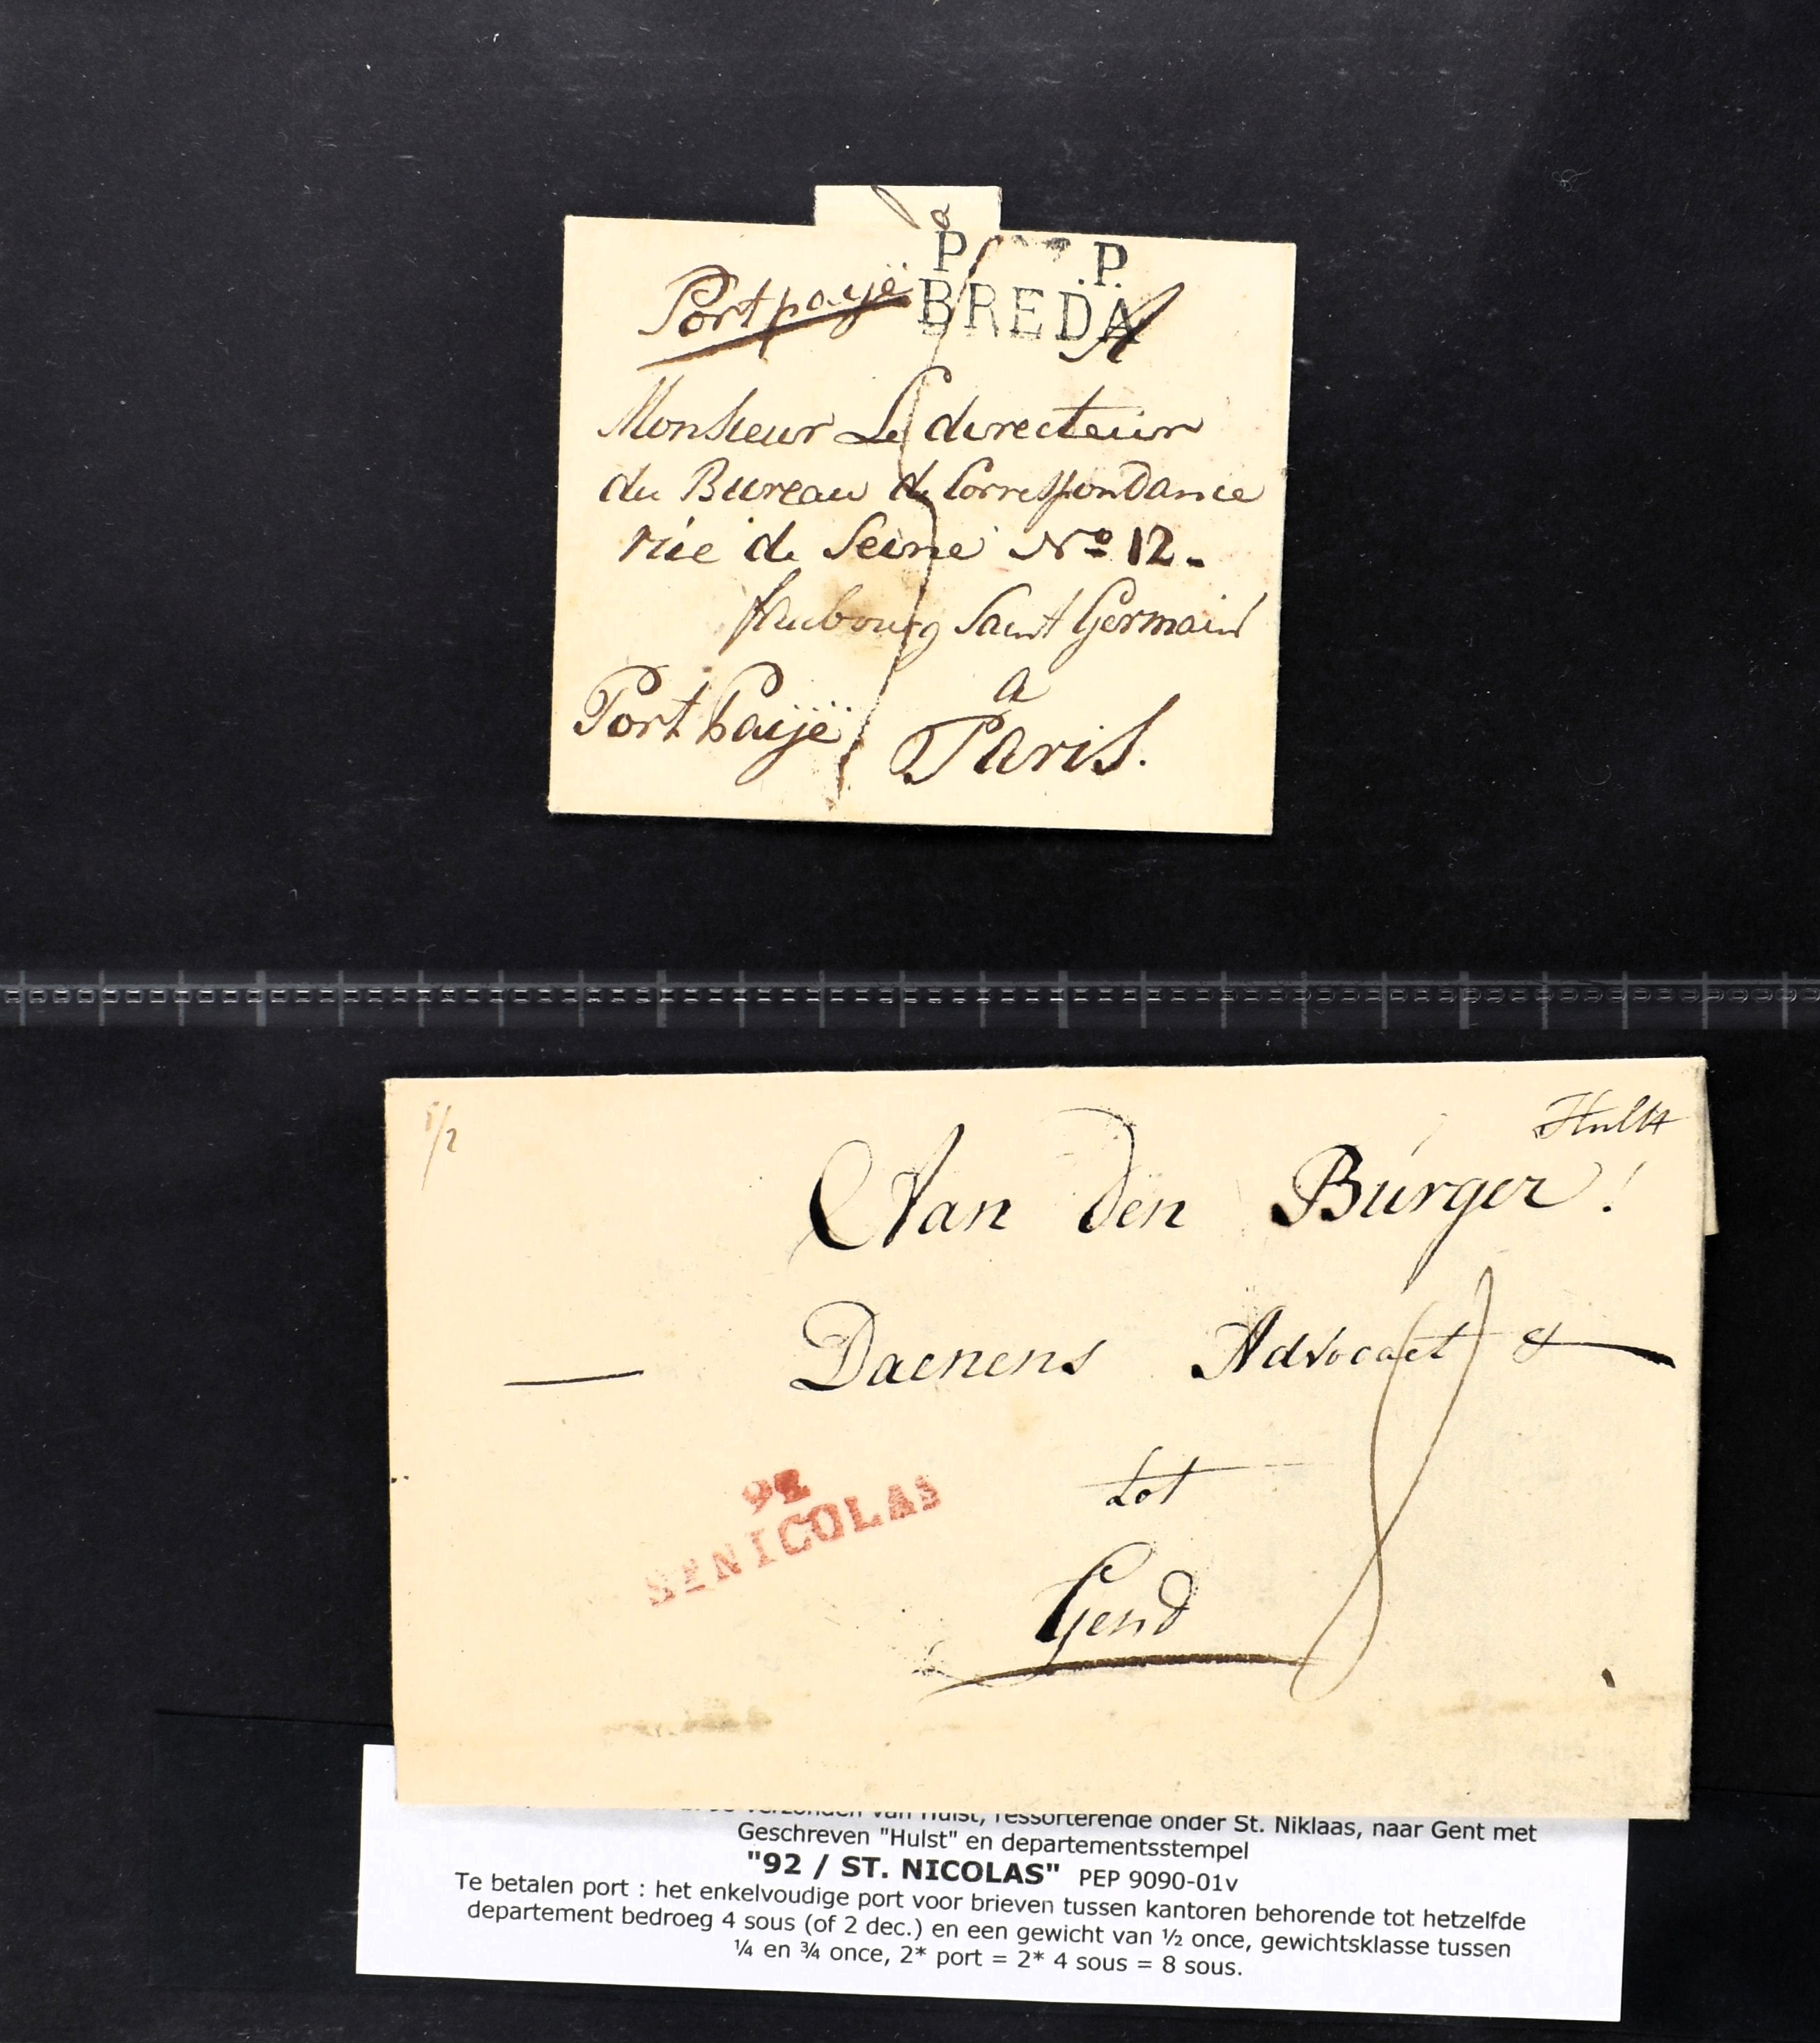 P. P.
BREDA
Port payë
A
Monsieur Le directeur
du Bureau de Correspondance
rúe de Seine No 12.
faubourg Saint Germain
a
Port paijë Paris.
1/2
Hulst
Aan den Burger!
Daenens Advocaet &
8
92
ST NICOLAS
tot
Gend
verzonden van Hulst, ressorterende onder St. Niklaas, naar Gent met
Geschreven "Hulst" en departementsstempel
"92 / ST. NICOLAS" PEP 9090-01v
Te betalen port : het enkelvoudige port voor brieven tussen kantoren behorende tot hetzelfde
departement bedroeg 4 sous (of 2 dec.) en een gewicht van ½ once, gewichtsklasse tussen
¼ en ¾ once, 2* port = 2* 4 sous = 8 sous.